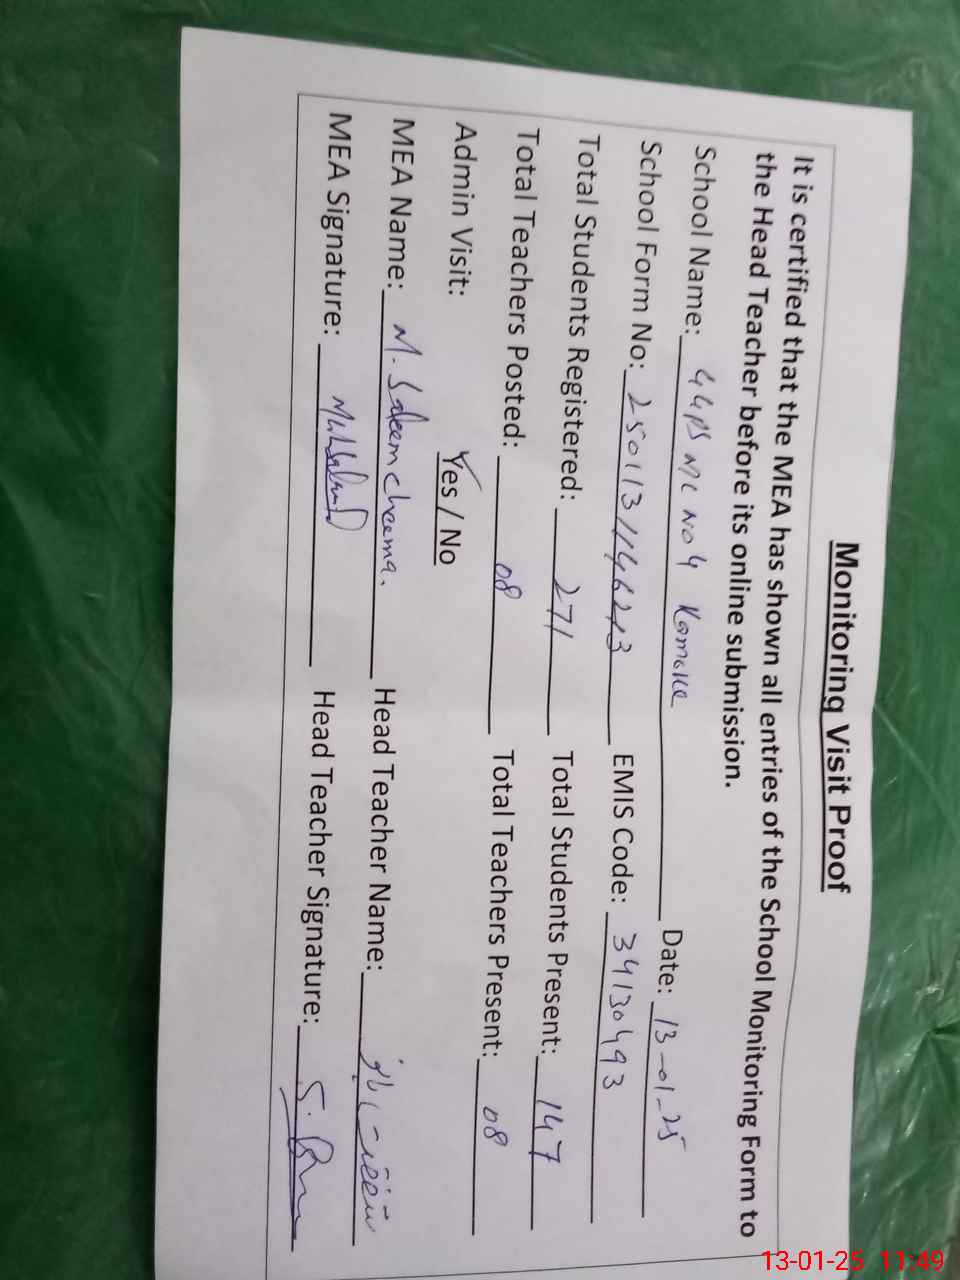 Monitoring Visit Proof
It is certified that the MEA has shown all entries of the School Monitoring Form to
the Head Teacher before its online submission.
School Name: GGPS MC No 4 Kamoke Date: 13-01-25
School Form No: 2501131146213 EMIS Code: 34130493
Total Students Registered: 271 Total Students Present: 147
Total Teachers Posted: 08 Total Teachers Present: 08
Admin Visit: Yes / No
MEA Name: M. Saleem cheema. Head Teacher Name:
MEA Signature: Head Teacher Signature:
13-01-25 11:49